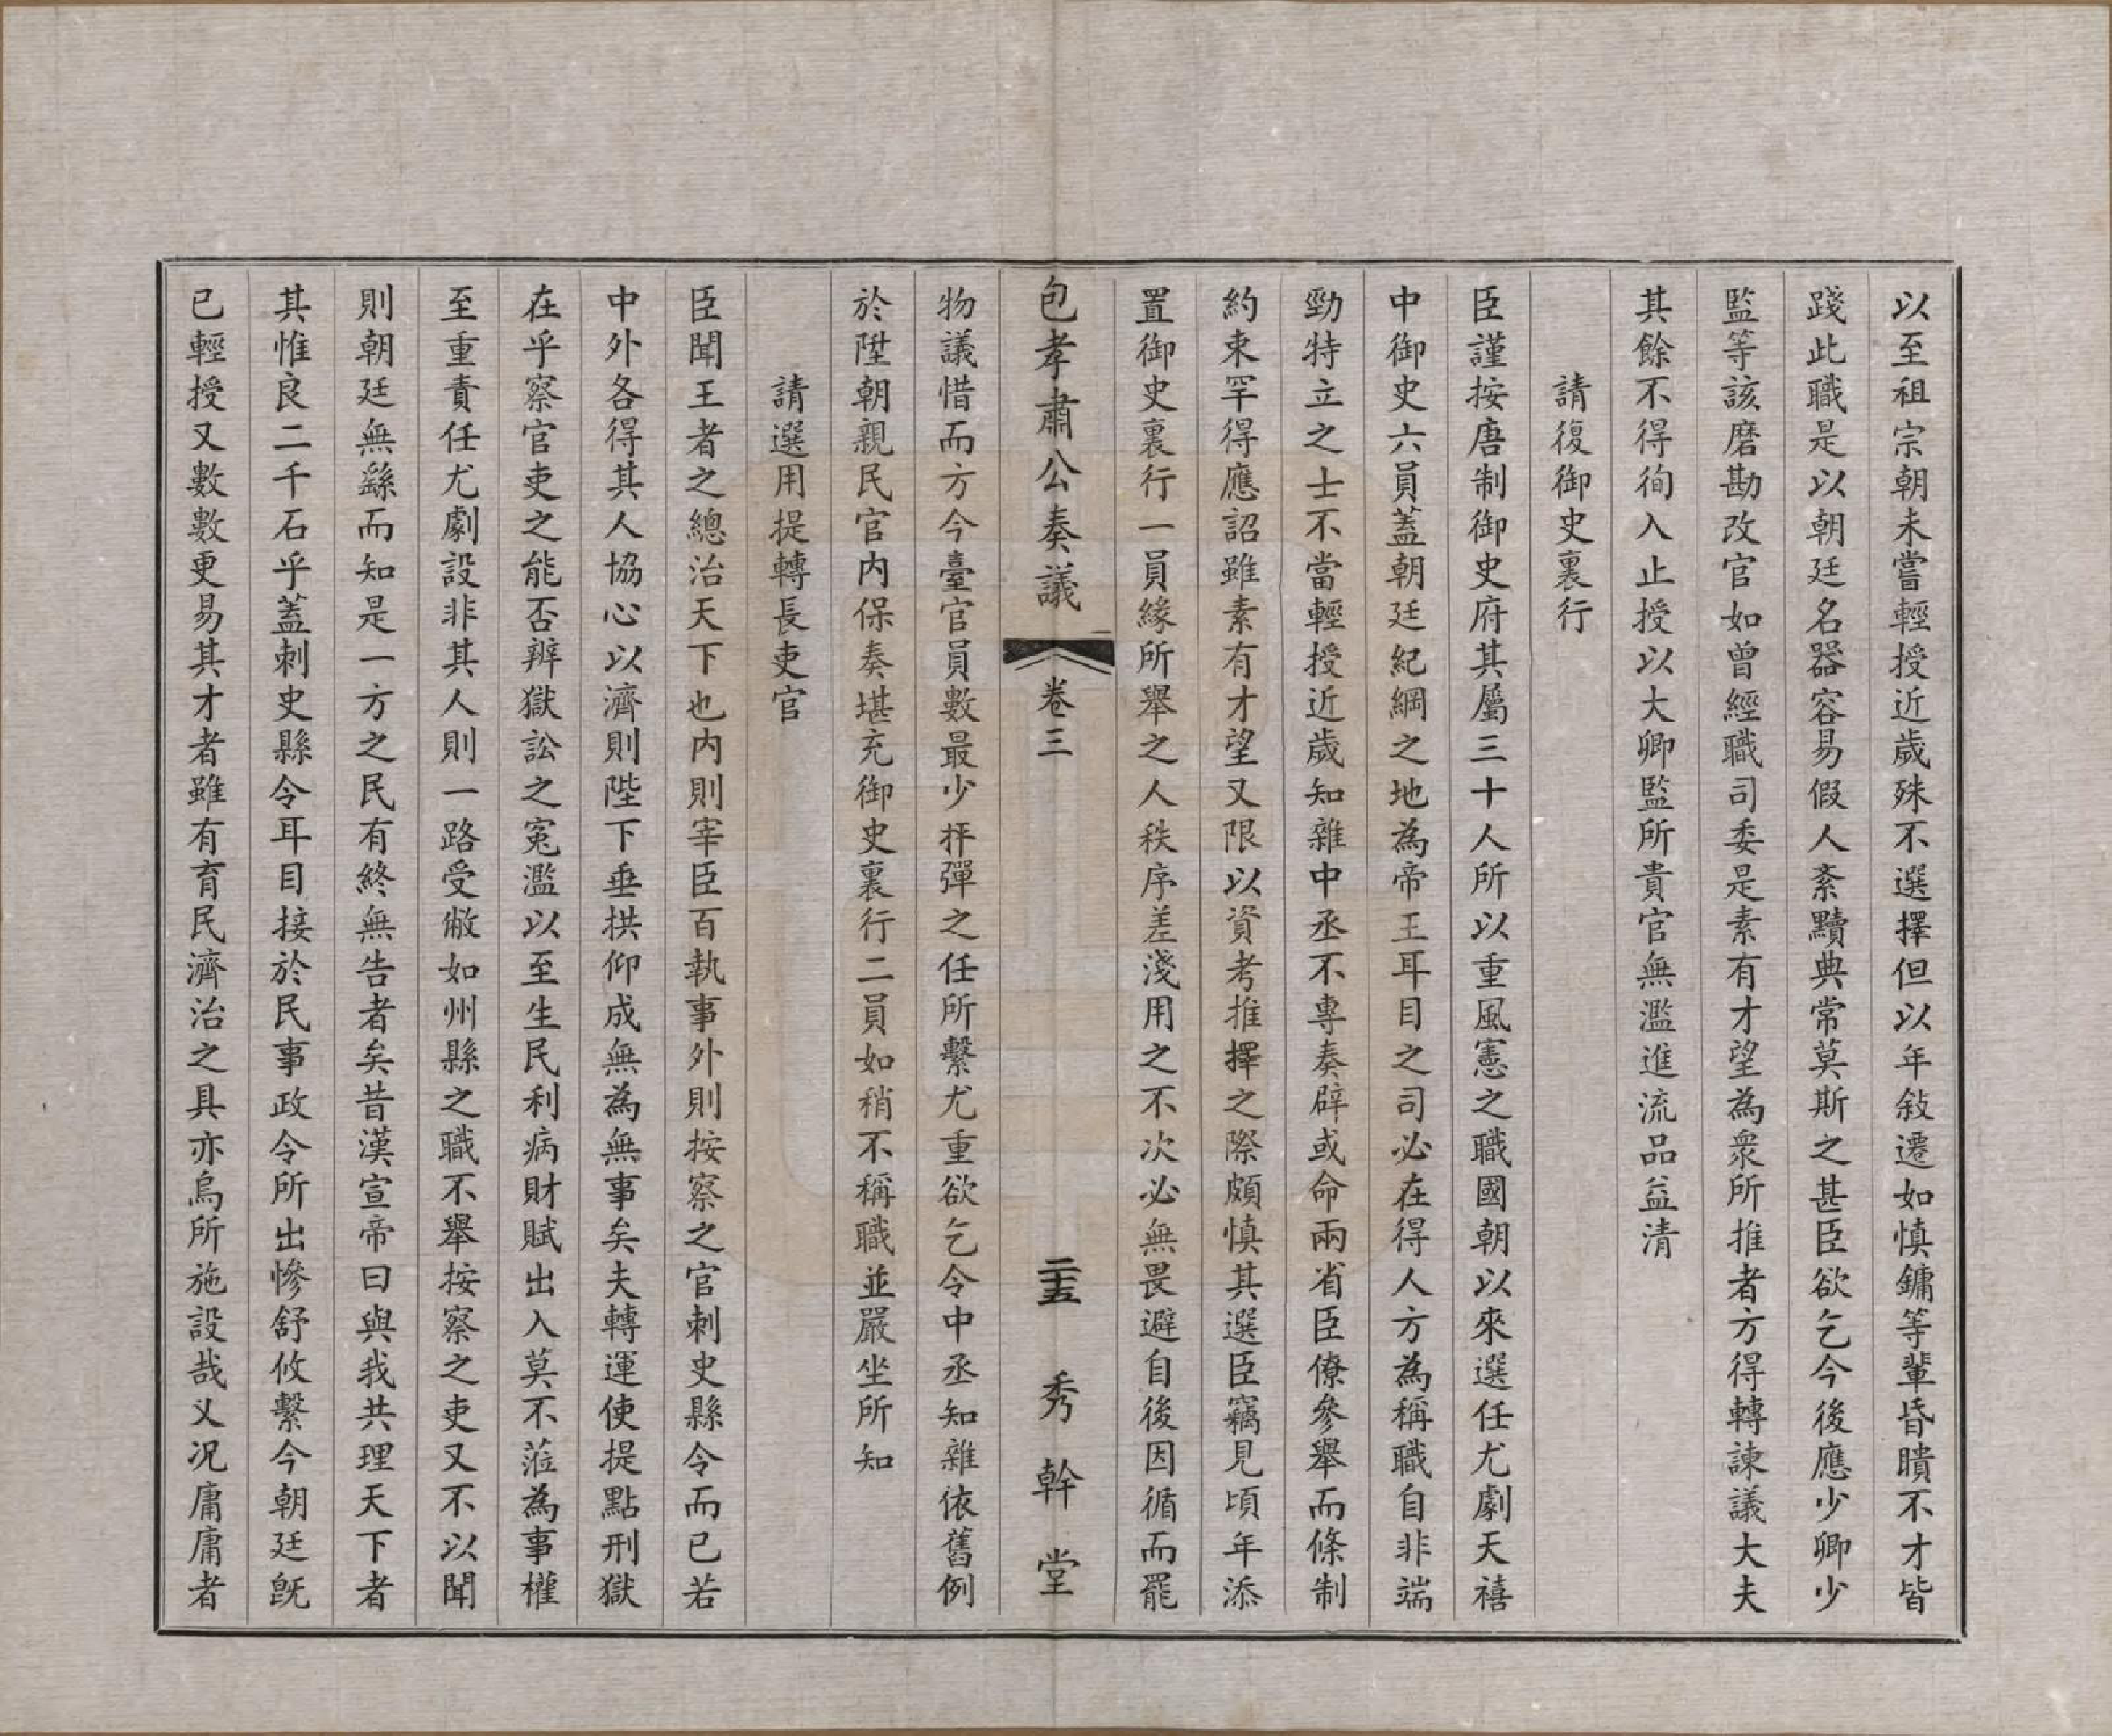 以至祖宗朝未嘗輕授近歲殊不選擇但以年敍遷如慎鏞等輩昏瞶不才皆
踐此職是以朝廷名器容易假人紊黷典常莫斯之甚臣欲乞今後應少卿少
監等該磨勘改官如曾經職司委是素有才望為衆所推者方得轉諫議大夫
其餘不得徇入止授以大卿監所貴官無濫進流品益清
請復御史裏行
臣謹按唐制御史府其屬三十人所以重風憲之職國朝以來選任尤劇天禧
中御史六員蓋朝廷紀綱之地為帝王耳目之司必在得人方為稱職自非端
勁特立之士不當輕授近歲知雜中丞不專奏辟或命兩省臣僚參舉而條制
約束罕得應詔雖素有才望又限以資考推擇之際頗慎其選臣竊見頃年添
置御史裏行一員緣所舉之人秩序差淺用之不次必無畏避自後因循而罷
包孝肅公奏議 卷三 二十五 秀幹堂
物議惜而方今臺官員數最少抨彈之任所繫尤重欲乞令中丞知雜依舊例
於陞朝親民官内保奏堪充御史裏行二員如稍不稱職並嚴坐所知
請選用提轉長吏官
臣聞王者之總治天下也内則宰臣百執事外則按察之官刺史縣令而已若
中外各得其人協心以濟則陛下垂拱仰成無為無事矣夫轉運使提點刑獄
在乎察官吏之能否辨獄訟之寃濫以至生民利病財賦出入莫不蒞為事權
至重責任尤劇設非其人則一路受敝如州縣之職不舉按察之吏又不以聞
則朝廷無繇而知是一方之民有終無告者矣昔漢宣帝曰與我共理天下者
其惟良二千石乎蓋刺史縣令耳目接於民事政令所出慘舒攸繫今朝廷旣
已輕授又數數更易其才者雖有育民濟治之具亦烏所施設哉乂况庸庸者